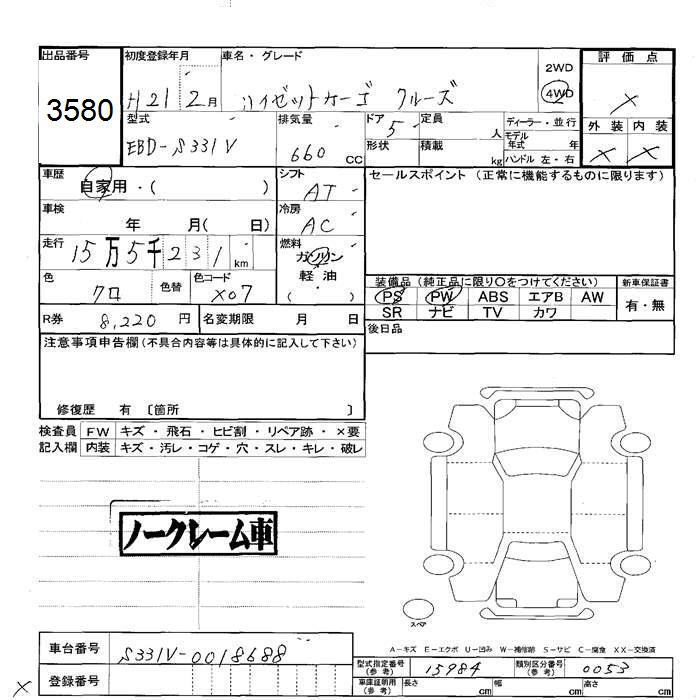 出品番号 初度登録年月 車名・グレード 評価点
3580 H21 2月 ハイゼットカーゴ クルーズ 2WD 4WD ×
型式 排気量 ドア 定員 ディーラー・並行 外装 内装
EBD-S331V 660 CC 5 人 モデル年式 年 × ×
形状 積載 kg ハンドル 左・右
車歴 シフト セールスポイント (正常に機能するものに限ります)
自家用・( ) AT
車検 冷房
年 月( 日) AC
走行 燃料
15万5千231km ガソリン
軽油
( ・ )
色 色替 色コード 装備品 (純正品に限り○をつけてください) 新車保証書
クロ X07 PS PW ABS エアB AW 有・無
SR ナビ TV カワ
R券 8,220円 名変期限 月 日 後日品
注意事項申告欄(不具合内容等は具体的に記入して下さい)
修復歴 有 〔箇所 〕
検査員 FW キズ・飛石・ヒビ割・リペア跡・×要
記入欄 内装 キズ・汚レ・コゲ・穴・スレ・キレ・破レ
ノークレーム車
スペア
A-キズ E-エクボ U-凹み W-補修跡 S-サビ C-腐食 XX-交換済
車台番号 S331V-0018688
型式指定番号(参考) 15984 類別区分番号(参考) 0053
登録番号 車庫証明用(参考) 長さ cm 幅 cm 高さ cm
×